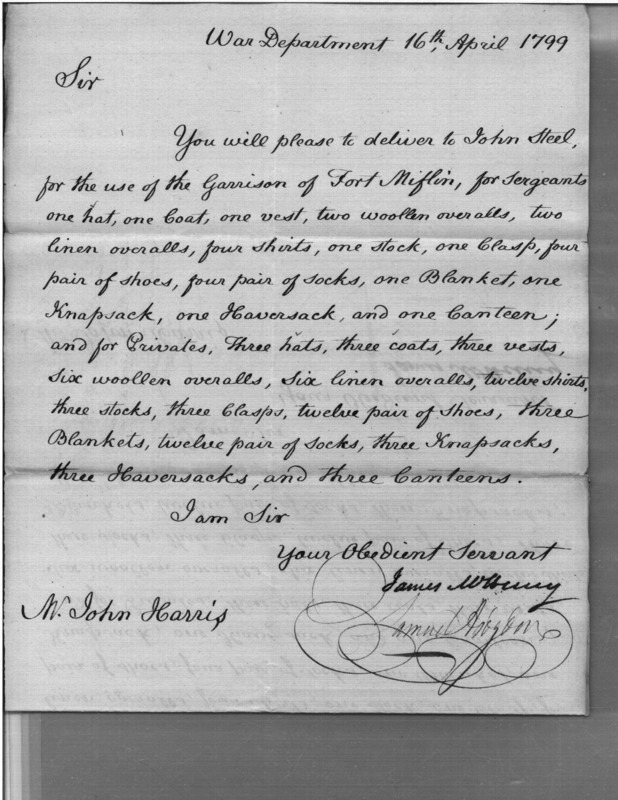 War Department 16th, April 1799
Sir
You will please to deliver to John Steel,
for the use of the Garrison of Fort Miflin, for Sergeants
one hat, one Coat, one vest, two woollen overalls, two
linen overalls, four shirts, one stock, one Clasp, four
pair of shoes, four pair of socks, one Blanket, one
Knapsack, one Haversack, and one Canteen;
and for Privates, Three hats, three coats, three vests,
six woollen overalls, six linen overalls, twelve shirts,
three stocks, three Clasps, twelve pair of shoes, three
Blankets, twelve pair of socks, three Knapsacks,
three Haversacks, and three Canteens.
I am Sir
Your Obedient Servant
James McHenry
Samuel Hodgdon
Mr. John Harris